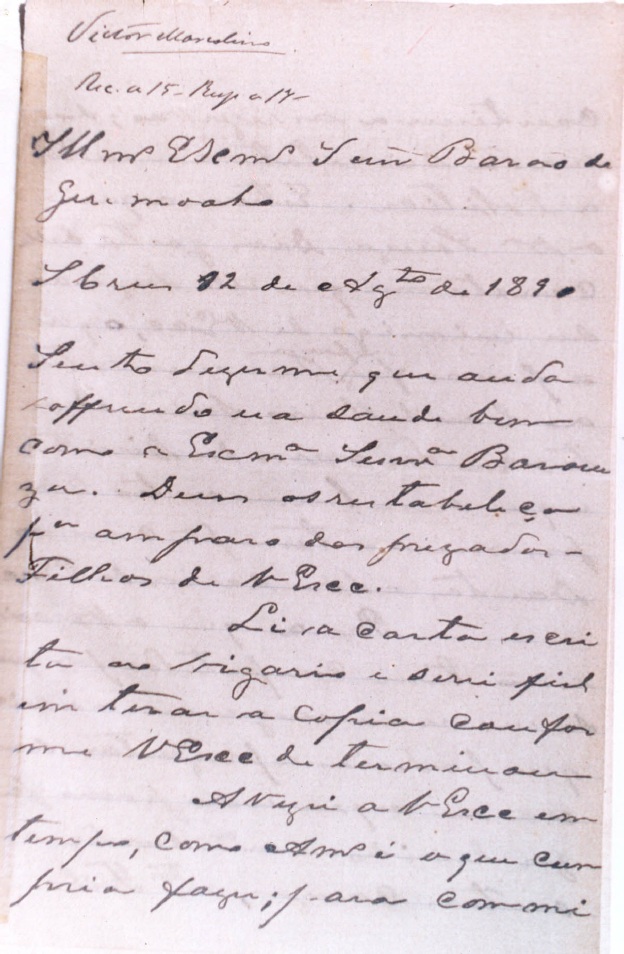 Victor Marcolino
Rec. a 15 - Resp a 17 -
Illmº Exmº Senr Barão de
Geremoabo
12 de Agto de 1890
Sinto dizerme que anda
soffrendo na saude bem
como a Excmª Senrª Barone
za. Deus os restabeleça
pª amparo dos prezados -
Filhos de VExcc.
Li a carta escri
ta ao Vigario e serei fiel
em terar a copia confor
me VExcc determinou
Avizei a VExcc em
tempo, como Amº é o que cum
pria fazer; para commi